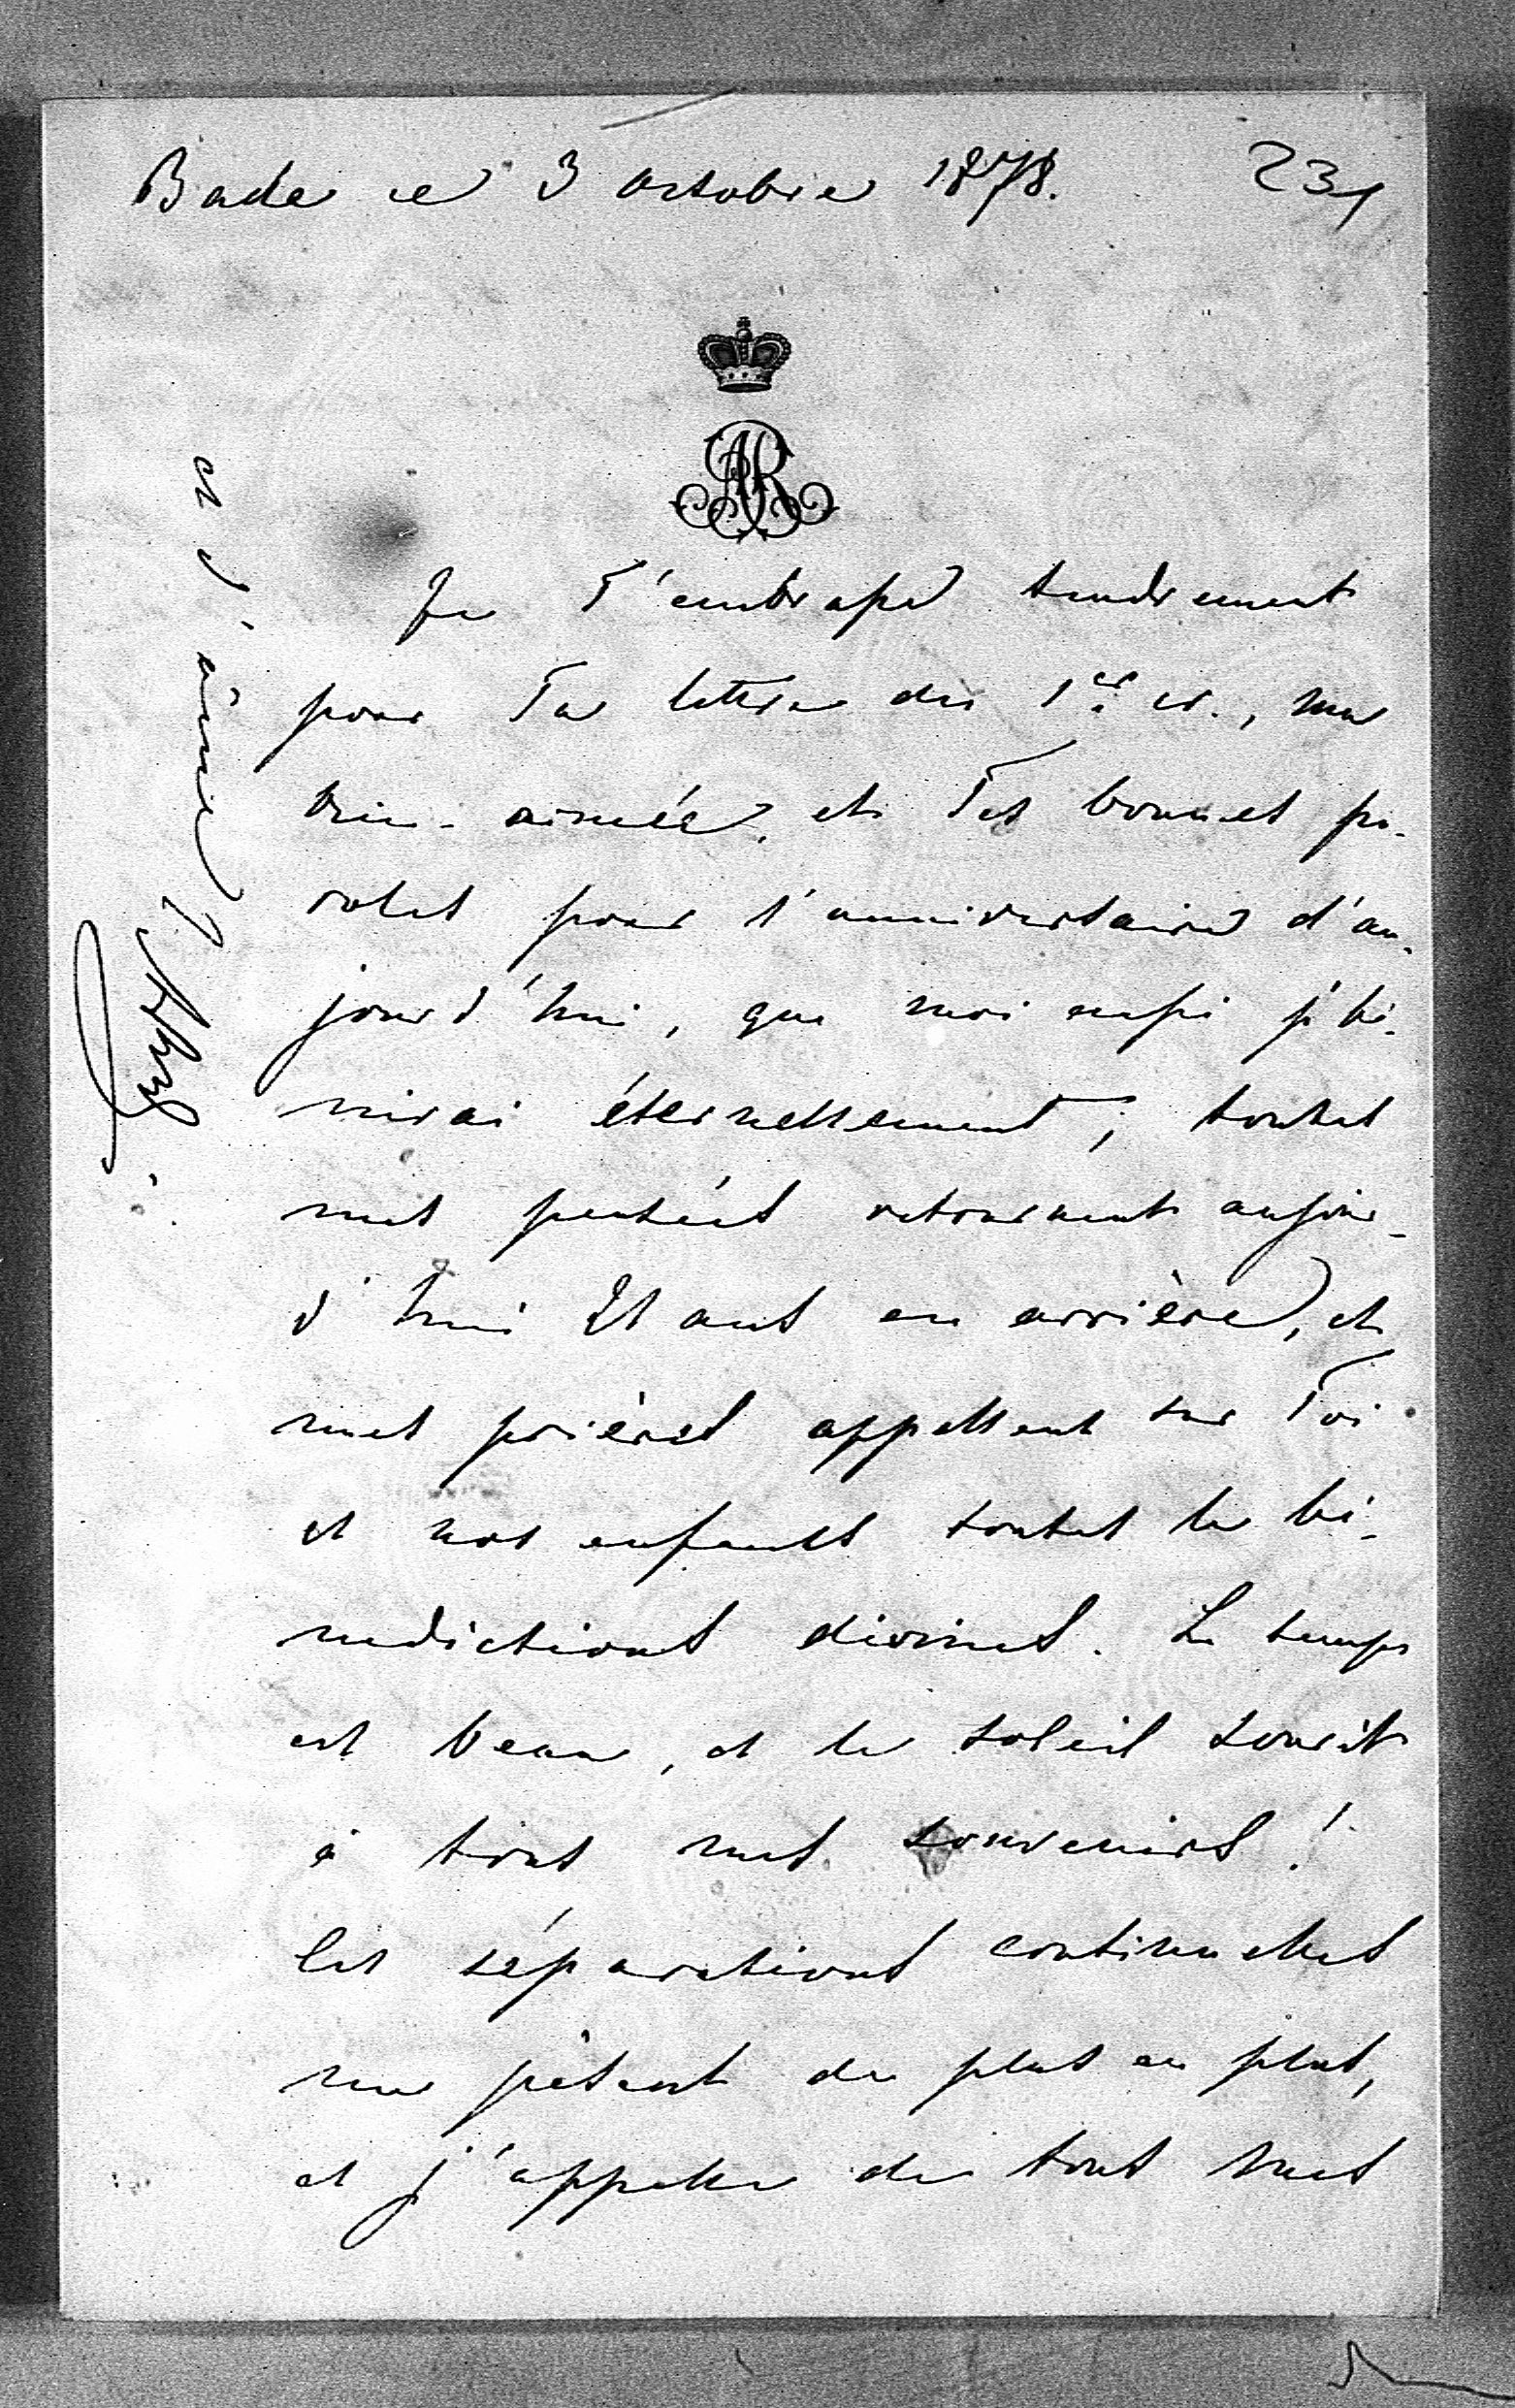 Bade ce 3 octobre 1878.
231
AR
Je T'embrasse tendrement
pour Ta lettre du 1er ct., ma
bien-aimée, et Tes bonnes pa-
roles pour l'anniversaire d'au-
jourd'hui, que moi aussi je bé-
nirai éternellement; toutes
mes pensées retournent aujour-
d'hui 21 ans en arrière, et
mes prières appellent sur Toi
et nos enfants toutes les bé-
nedictions divines. Le temps
est beau, et le soleil sourit
à tous mes souvenirs!
Les séparations continuelles
me pèsent de plus en plus,
et j'appelle de tous mes
et T'aime